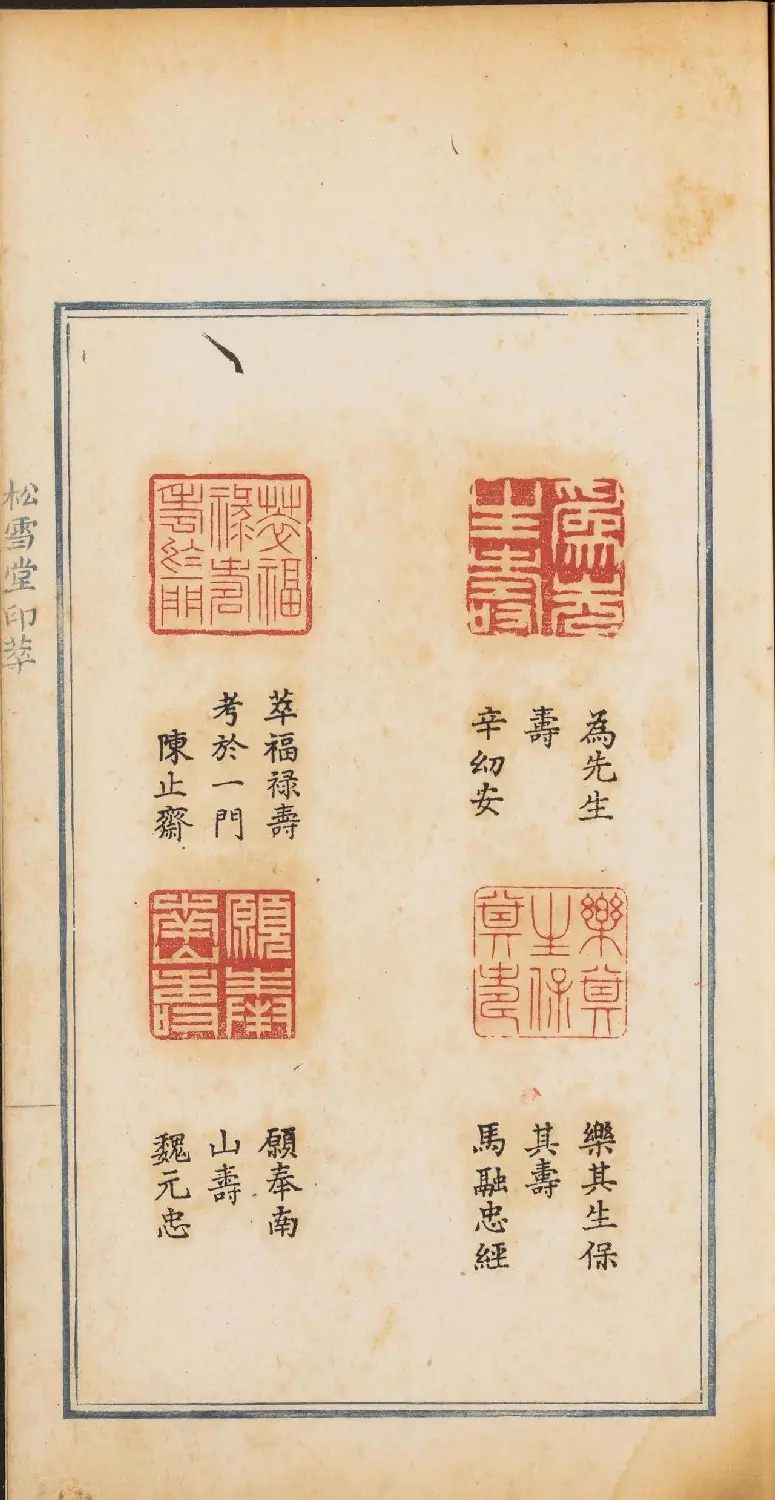 為先生
壽
辛幼安
樂其生保
其壽
馬融忠經
萃福祿壽
考於一門
陳止齋
願奉南
山壽
魏元忠
松雪堂印萃